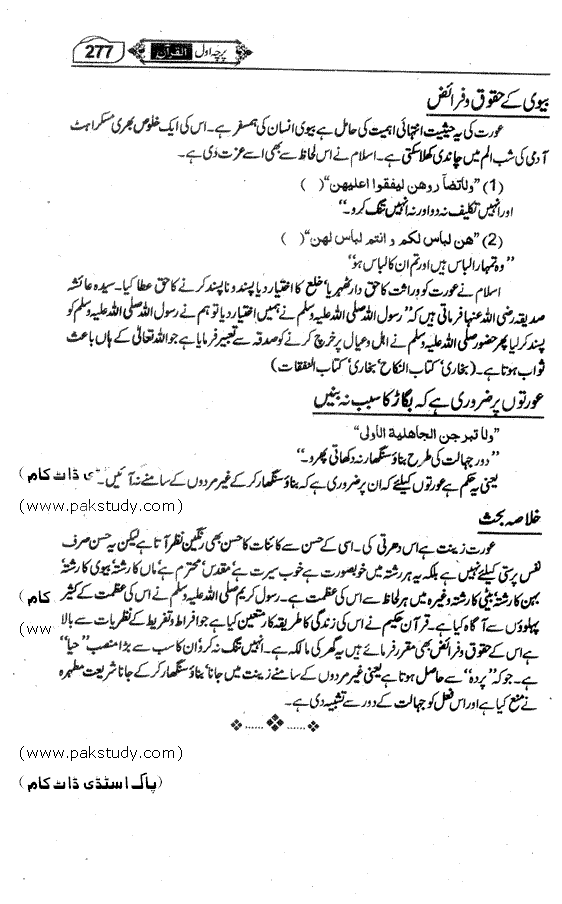 277 القرآن پرچہ اول
بیوی کے حقوق و فرائض
عورت کی یہ حیثیت انتہائی اہمیت کی حامل ہے بیوی انسان کی ہمسفر ہے۔ اس کی ایک خلوص بھری مسکراہٹ
آدمی کی شب الم میں چاندی کھلا سکتی ہے۔ اسلام نے اس لحاظ سے بھی اسے عزت دی ہے۔
(1) ”ولا تضآ روھن لیفقوا اعلیھن“ ( )
اور انہیں تکلیف نہ دو اور نہ انہیں تنگ کرو۔“
(2) ”ھن لباس لکم و انتم لباس لھن“ ( )
”وہ تمہارا لباس ہیں اور تم ان کا لباس ہو“
اسلام نے عورت کو وراثت کا حق دار ٹھہریا‘ خلع کا اختیار دیا پسند و نا پسند کرنے کا حق عطا کیا۔ سیدہ عائشہ
صدیقہ رضی اللہ عنہا فرماتی ہیں کہ ”رسول اللہ صلی اللہ علیہ وسلم نے ہمیں اختیار دیا تو ہم نے رسول اللہ صلی اللہ علیہ وسلم کو
پسند کر لیا پھر حضور صلی اللہ علیہ وسلم نے اہل و عیال پر خرچ کرنے کو صدقہ سے تعبیر فرمایا ہے جو اللہ تعالیٰ کے ہاں باعث
ثواب ہوتا ہے۔ (بخاری‘ کتاب النکاح‘ بخاری‘ کتاب النفقات)
عورتوں پر ضروری ہے کہ بگاڑ کا سبب نہ بنیں
”ولا تبر جن الجاھلیة الأولی“
”دور جہالت کی طرح بناؤ سنگھار نہ دکھاتی پھرو۔“
یعنی یہ حکم ہے عورتوں کیلئے کہ ان پر ضروری ہے کہ بناؤ سنگھار کر کے غیر مردوں کے سامنے نہ آئیں۔ ڈی ڈاٹ کام )
(www.pakstudy.com)
خلاصہ بحث
عورت زینت ہے اس دھرتی کی۔ اسی کے حسن سے کائنات کا حسن بھی رنگین نظر آتا ہے لیکن یہ حسن صرف
نفس پرستی کیلئے نہیں ہے بلکہ یہ ہر رشتہ میں خوبصورت ہے خوب سیرت ہے‘ مقدس‘ محترم ہے‘ ماں کا رشتہ‘ بیوی کا رشتہ‘
بہن کا رشتہ‘ بیٹی کا رشتہ وغیرہ میں ہر لحاظ سے اس کی عظمت ہے۔ رسول کریم صلی اللہ علیہ وسلم نے اس کی عظمت کے کثیر کام )
پہلوؤں سے آگاہ کیا ہے۔ قرآن حکیم نے اس کی زندگی کا طریقہ کار متعین کیا ہے جو افراط و تفریط کے نظریات سے بالا (ww
ہے اس کے حقوق و فرائض بھی مقرر فرمائے ہیں یہ گھر کی مالکہ ہے۔ انہیں تنگ نہ کرو‘ ان کا سب سے بڑا منصب ”حیا“
ہے۔ جو کہ ”پردہ“ سے حاصل ہوتا ہے یعنی غیر مردوں کے سامنے زینت میں جانا‘ بناؤ سنگھار کر کے جانا شریعت مطہرہ
نے منع کیا ہے اور اس فعل کو جہالت کے دور سے تشبیہ دی ہے۔
(www.pakstudy.com)
(پاک اسٹڈی ڈاٹ کام )